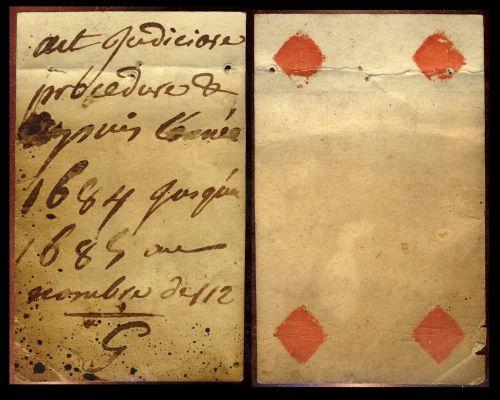 act Judiciose
procedure &
depuis l'année
1684 jusqu'a
1685 au
nombre de 112
G